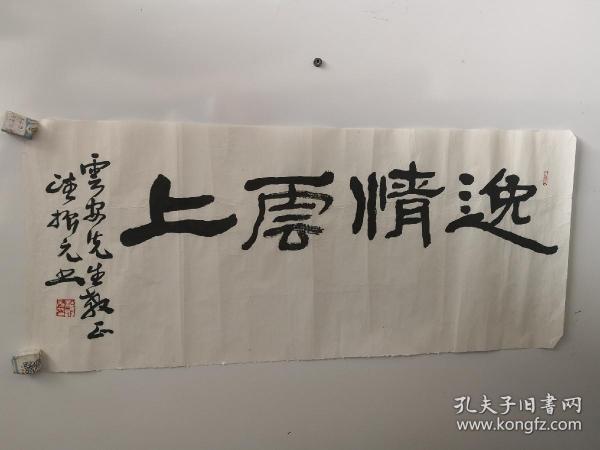 逸情雲上
雲安先生教正
漆振元书
孔夫子旧书网
www.kongfz.com